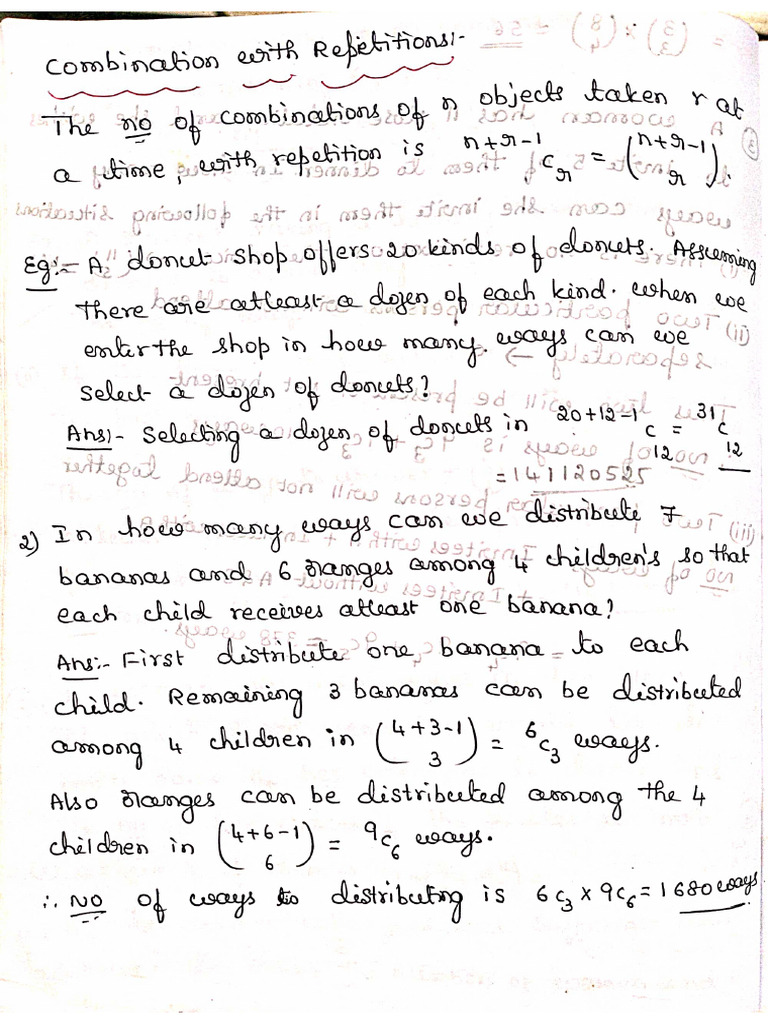 Combination with Repetitions:-
The no of combinations of n objects taken r at
a time, with repetition is n+r-1Cr = (n+r-1 r).
Eg:- A donut shop offers 20 kinds of donuts. Assuming
there are atleast a dozen of each kind. when we
enter the shop in how many ways can we
select a dozen of donuts?
Ans:- Selecting a dozen of donuts in 20+12-1C12 = 31C12
= 141120525
2) In how many ways can we distribute 7
bananas and 6 oranges among 4 children's so that
each child receives atleast one banana?
Ans:- First distribute one banana to each
child. Remaining 3 bananas can be distributed
among 4 children in (4+3-1 3) = 6C3 ways.
Also oranges can be distributed among the 4
children in (4+6-1 6) = 9C6 ways.
∴ No of ways to distributing is 6C3 x 9C6 = 1680 ways